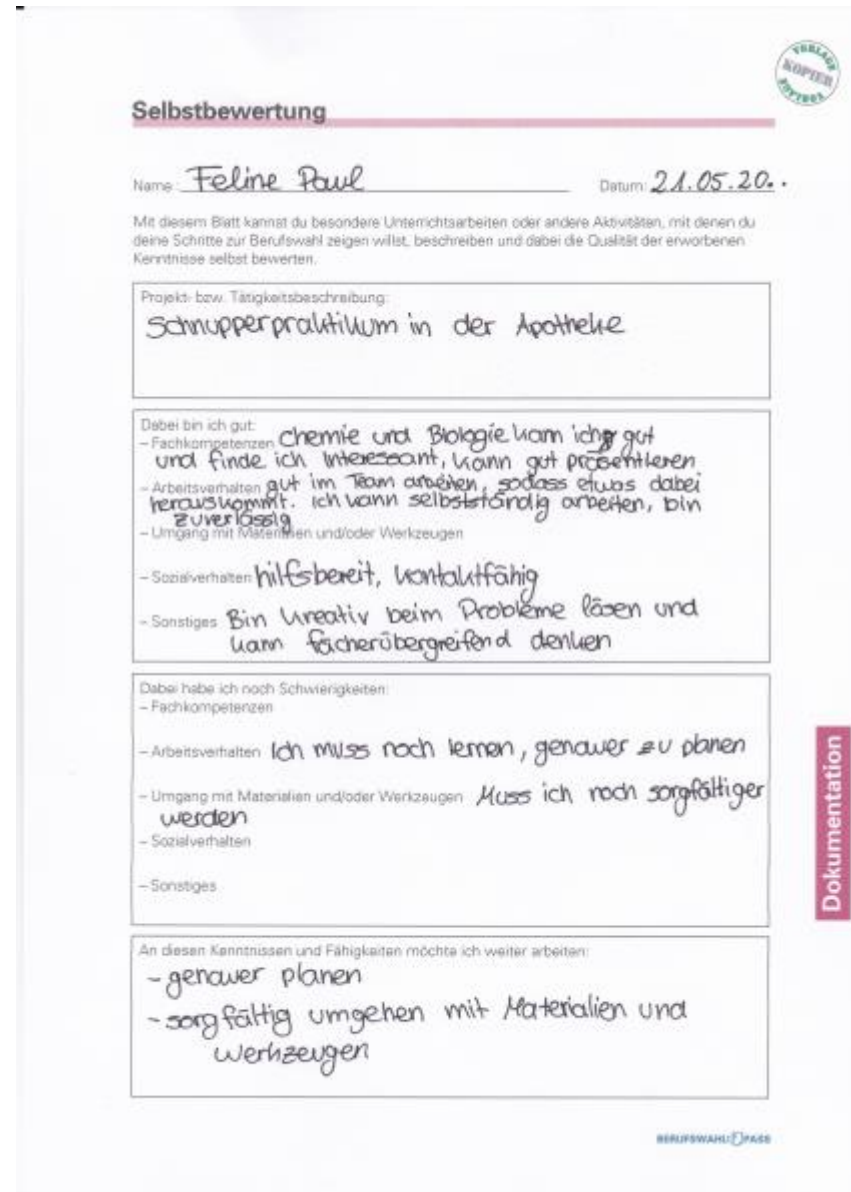 VORLAGE
KOPIER
Selbstbewertung
Name: Feline Paul Datum: 21.05.20..
Mit diesem Blatt kannst du besondere Unterrichtsarbeiten oder andere Aktivitäten, mit denen du
deine Schritte zur Berufswahl zeigen willst, beschreiben und dabei die Qualität der erworbenen
Kenntnisse selbst bewerten.
Projekt- bzw. Tätigkeitsbeschreibung:
Schnupperpraktikum in der Apotheke
Dabei bin ich gut:
– Fachkompetenzen Chemie und Biologie kann ich gut
und finde ich interessant, kann gut präsentieren
– Arbeitsverhalten gut im Team arbeiten, sodass etwas dabei
herauskommt. Ich kann selbstständig arbeiten, bin
zuverlässig
– Umgang mit Materialien und/oder Werkzeugen
– Sozialverhalten hilfsbereit, kontaktfähig
– Sonstiges Bin kreativ beim Probleme lösen und
kann fächerübergreifend denken
Dabei habe ich noch Schwierigkeiten:
– Fachkompetenzen
– Arbeitsverhalten Ich muss noch lernen, genauer zu planen
– Umgang mit Materialien und/oder Werkzeugen Muss ich noch sorgfältiger
werden
– Sozialverhalten
– Sonstiges
Dokumentation
An diesen Kenntnissen und Fähigkeiten möchte ich weiter arbeiten:
- genauer planen
- sorgfältig umgehen mit Materialien und
Werkzeugen
BERUFSWAHL PASS